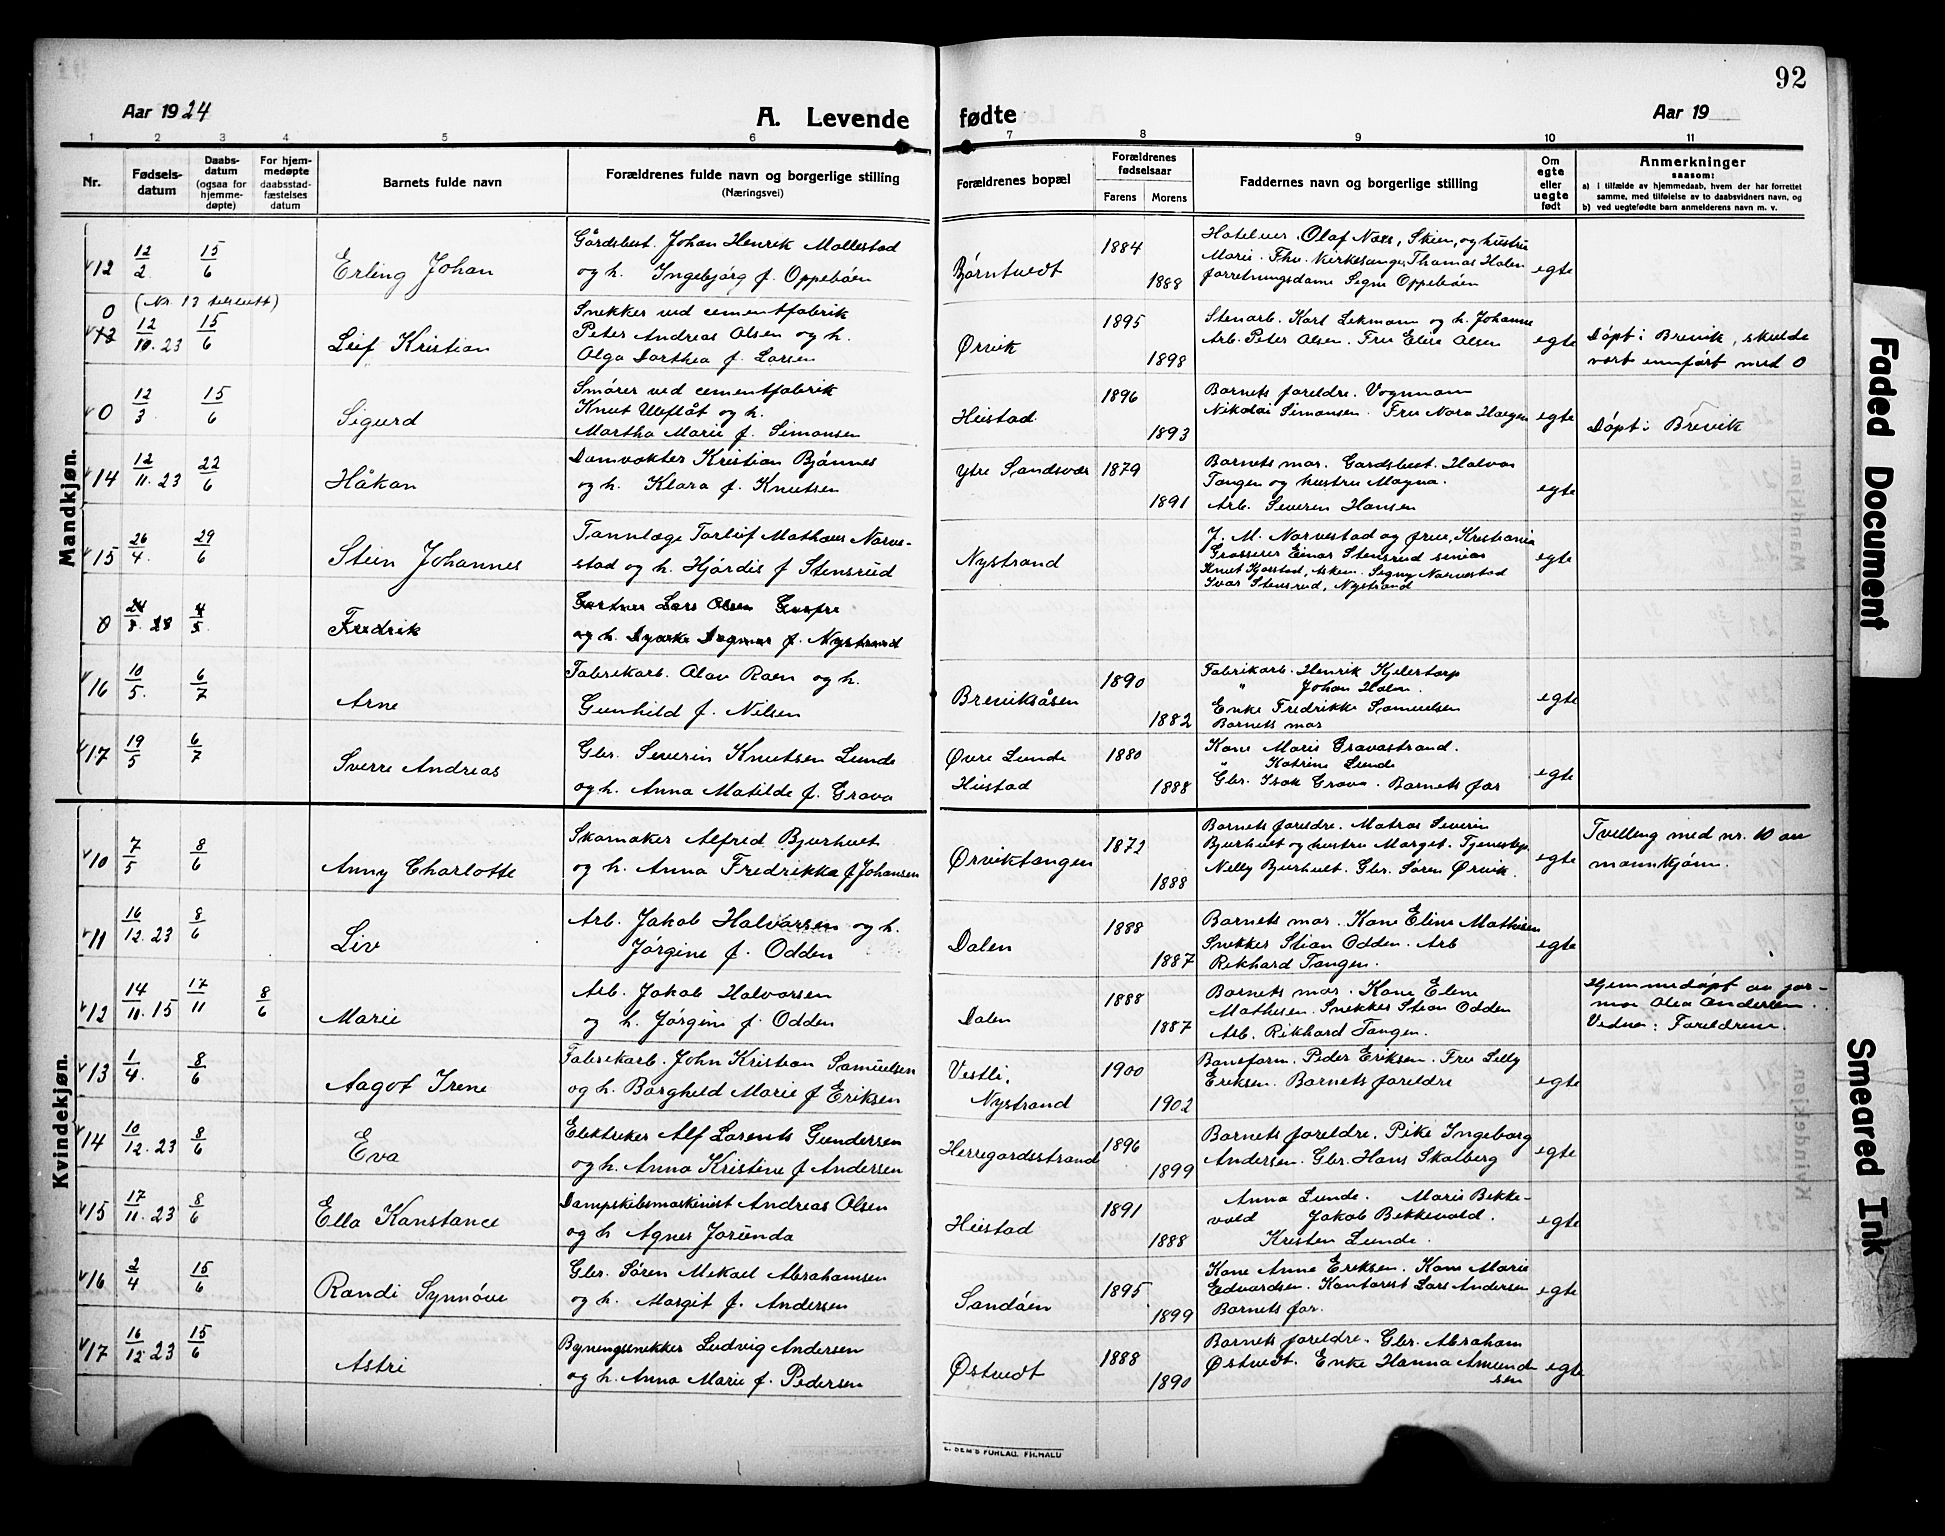 92
Aar 1924
A. Levende
fødte
Aar 19
1 2 3 4 5 6 7 8 9 10 11
Nr.
Fødsels-
datum
Daabs-
datum
(ogsaa for
hjemme-
døpte)
For hjem-
medøpte
daabsstad-
fæstelses
datum
Barnets fulde navn
Forældrenes fulde navn og borgerlige stilling
(Næringsvei)
Forældrenes bopæl
Forældrenes
fødselsaar
Farens Morens
Faddernes navn og borgerlige stilling
Om
egte
eller
uegte
født
Anmerkninger
saasom:
a) i tilfælde av hjemmedaab, hvem der har forrettet
samme, med tilføielse av to daabsvidners navn, og
b) ved uegtefødte barn anmelderens navn m. v.
Mandkjøn.
12 12/2. 15/6 Erling Johan
Gårdsbest. Johan Henrik Mollestad
og h. Ingebjørg f. Oppebøen
Børntvedt 1884 1888
Olaf Næss, Skien, og hustru
Marie. Fhv. Kirkesanger Thomas Holen
forretningsdame Signe Oppebøen
egte
0 (Nr. 13
13 12/10. 23 15/6 Leif Kristian
Snekker ved cementfabrik
Peter Andreas Olsen og h.
Olga Dorthea f. Larsen
Ørvik 1895 1898
Stenarb. Karl Lekmann og h. Johanne
Arb. Peter Olsen. Fru Elise Olsen
egte
Døpt i Brevik, skulde
vært innført med 0
0 12/3 15/6 Sigurd
Smører ved cementfabrik
Knut Uleflåt og h.
Martha Marie f. Simonsen
Heistad 1896 1893
Barnets foreldre. Vognmann
Nikolai Simonsen. Fru Nora
egte
Døpt i Brevik
14 12/11. 23 22/6 Håkan
Damvokter Kristian Bjønnes
og h. Klara f. Knutsen
Ytre Sandsvær 1879 1891
Barnets mor. Gardsbest. Halvor
Tangen og hustru Magna.
Arb. Severin Hansen
egte
15 26/4. 29/6 Stein Johannes
Tannlæge Torleif Mathæus Norve-
stad og h. Hjørdis f Stensrud
Nystrand
J. M. Norvestad og frue, Kristiania
Grosserer Einar Stensrud senior
Knut Kjorstad, Asken. Signy Norvestad
Ivar Stensrud, Nystrand
egte
0 24/8. 4/5. Fredrik
Gartner Lars Olsen
og h. Dyveke Dagmar f. Nystrand
16 10/5. 6/7 Arne
Fabrikarb. Olav Roen og h.
Gunhild f. Nilsen
Breviksåsen 1890 1882
Fabrikarb. Henrik Kjelestorp
" Johan Holm.
Enke Fredrikke Samuelsen
Barnets mor
egte
17 19/5 6/7 Sverre Andreas
Gbr. Severin Knutsen Lunde
og h. Anna Matilde f. Grava
Øvre Lunde
Heistad
1880 1888
Kone Maris Gravastrand.
" Katrine Lunde
Gbr. Isak Grava. Barnets far
egte
Kvindekjøn.
10 7/5 8/6 Anny Charlotte
Skomaker Alfred Bjurhult
og h. Anna Fredrikke f Johansen
Ørviktangen 1872 1888
Barnets foreldre. Matros Severin
Bjurhult og hustru Margot. Tjenestep.
Nelly Bjurhult. Gbr. Søren Ørvik.
egte
Tvilleng med nr. 10 av
mannkjønn.
11 16/12. 23 8/6 Liv
Arb. Jakob Halvorsen og h.
Jørgine f. Odden
Dalen 1888 1887
Barnets mor. Kone Eline Mathisen
Snekker Stian Odden. Arb
Rikhard Tangen.
egte
12 14/11. 15 17/11 8/6 Marie
Arb. Jakob Halvorsen
og h. Jørgine f. Odden
Dalen 1888 1887
Barnets mor. Kone Eline
Mathisen. Snekker Stian Odden
Arb. Rikhard Tangen.
Hjemmedøpt av jor-
mor Olea Andersen.
Vidner: Foreldrene.
13 1/4. 8/6 Aagot Irene
Fabrikarb. John Kristian Samuelsen
og h. Borghild Marie f Eriksen
Vestli,
Nystrand
1900 1902
Baneform. Peder Eriksen. Fru Selly
Eriksen. Barnets foreldre
egte
14 10/12. 23 8/6 Eva
Elektriker Alf Lorents Gundersen
og h. Anna Kristine f Andersen
Herregardsstrand 1896 1899
Barnets foreldre. Pike Ingeborg
Andersen. Gbr. Hans Skalberg
egte
15 17/11. 23 8/6 Ella Konstance
Dampskibsmaskinist Andreas Olsen
og h Agnes Jorunda
Heistad 1891 1888
Anna Lunde. Maris Bekke-
vold Jakob Bekkevold.
Kristen Lunde.
egte
16 2/4 15/6 Randi Synnøve
Gbr. Søren Mekael Abrahamsen
og h. Margit f. Andersen
Sandøen 1895 1899
Kone Anne Eriksen. Kone Marie
Edvardsen. Kontorist Lars Andersen
Barnets far.
egte
17 16/12. 23 15/6 Astri
Bygningssnekker Ludvig Andersen
og h. Anna Marie f. Pedersen
Østvedt 1888 1890
Barnets foreldre. Gbr. Abraham
Østvedt. Enke Hanna Amund
sen
egte
E. SEM'S FORLAG. FR.HALD
Faded Document
Smeared Ink